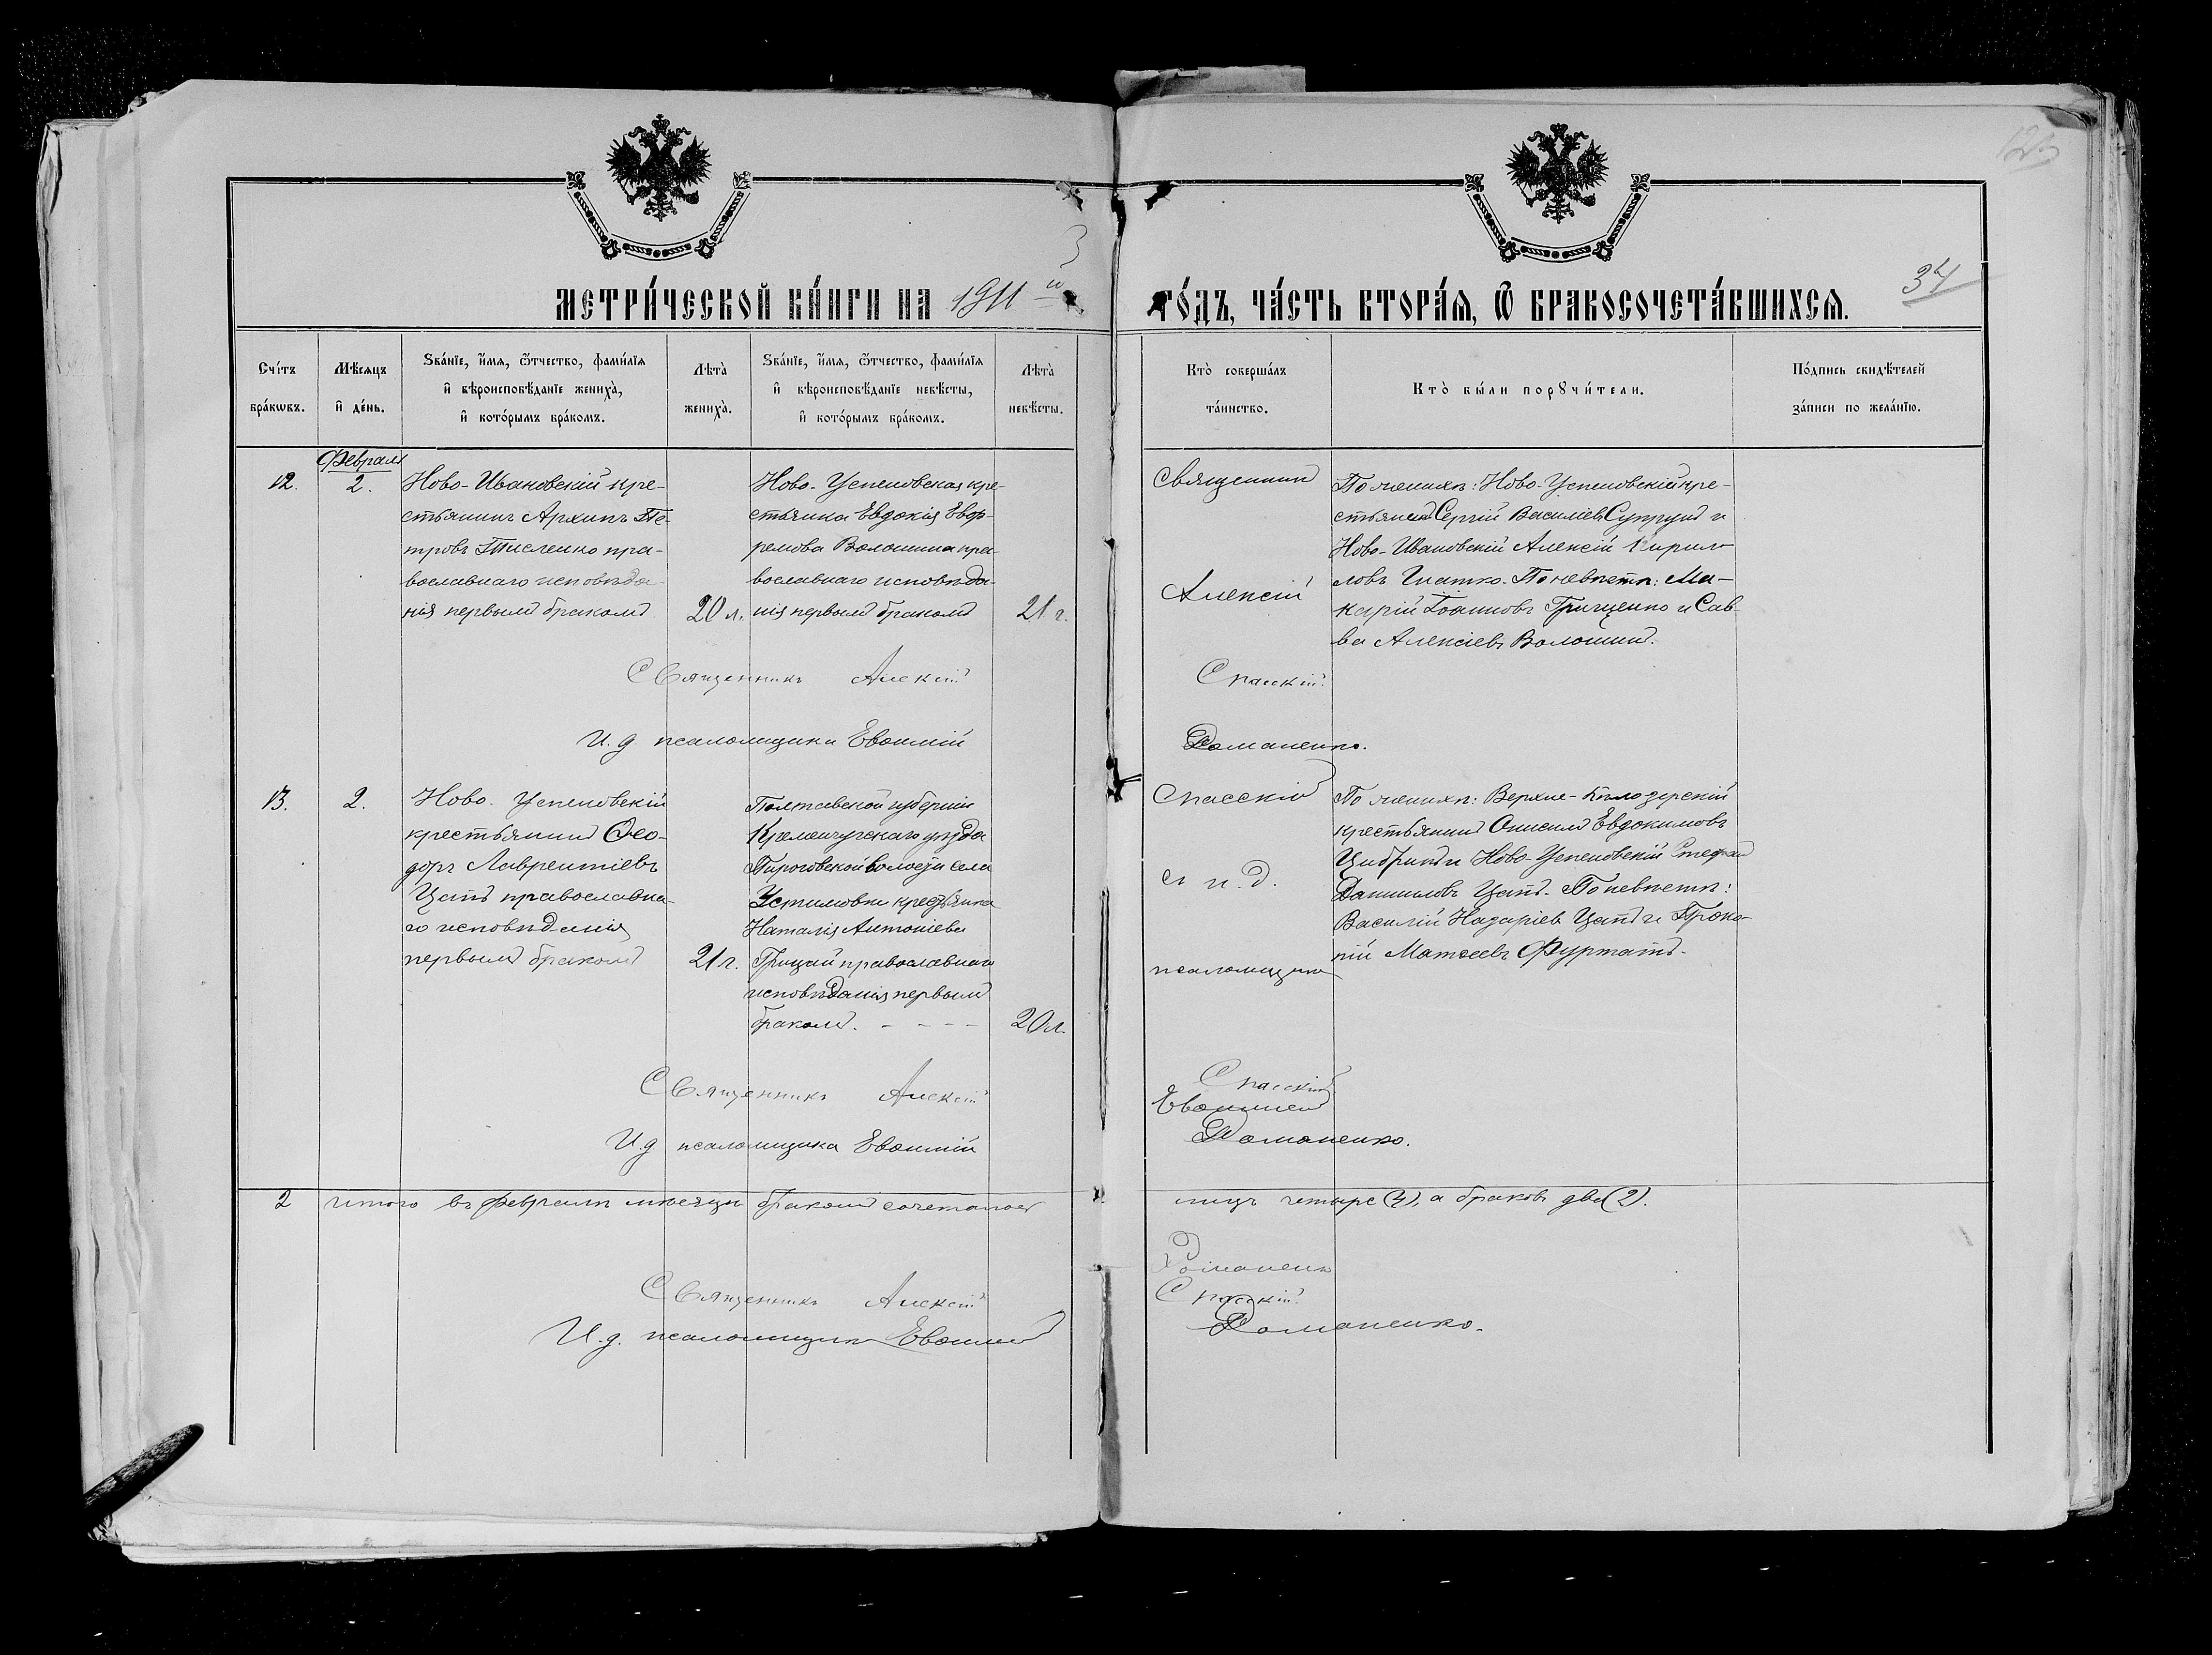 123
3
34
МЕТРИ́ЧЕСКОЙ КНИ́ГИ НА 1911 й ГО́ДЪ, ЧА́СТЬ ВТОРА́Я, Ѿ БРАКОСОЧЕТА́ВШИХСЯ.
Сче́тъ бра́кѡвъ.
Мѣ́сяцъ и҆ де́нь.
Ѕва́нїе, и҆́мя, ѻ҆́тчество, фами́лїя
и҆ вѣроисповѣ́данїе жениха̀,
и҆ кото́рымъ бра́комъ.
Лѣ́та жениха̀.
Ѕва́нїе, и҆́мя, ѻ҆́тчество, фами́лїя
и҆ вѣроисповѣ́данїе невѣ́сты,
и҆ кото́рымъ бра́комъ.
Лѣ́та невѣ́сты.
Кто̀ соверша́лъ
та́инство.
Кто̀ бы́ли порꙋчи́тели.
По́дпись свидѣ́телей
за́писи по жела́нїю.
Февраль
12.
2.
Ново-Ивановскій кре-
стьянинъ Архипъ Пе-
тровъ Тисленко пра-
вославнаго исповѣда-
нія первымъ бракомъ
20 л.
Ново-Успеновская кре-
стьянка Евдокія Евф-
ремова Волошина пра-
вославнаго исповѣда-
нія первымъ бракомъ
21 г.
Священникъ
Алексій
Спасскій
По женихѣ: Ново-Успеновскій кре-
стьянинъ Сергій Василіевъ Супрунъ и
Ново-Ивановскій Алексій Кирил-
ловъ Гнатко. По невѣстѣ: Ма-
карій Іоанновъ Грищенко и Сав-
ва Алексіевъ Волошинъ.
Священникъ Алексій Спасскій
И. д. псаломщика Евѳимій Доманенко.
13.
2.
Ново-Успеновскій
крестьянинъ Ѳео-
доръ Лаврентіевъ
Цапъ православна-
го исповѣданія
первымъ бракомъ
21 г.
Полтавской губерніи
Кременчугскаго уѣзда
Пироговской волости села
Устимовки крестьянка
Наталія Антоніева
Грицай православнаго
исповѣданія первымъ
бракомъ. - - - -
20 л.
Спасскій
съ и. д.
псаломщика
Евѳиміемъ
Доманенко.
По женихѣ: Верхне-Бѣлозерскій
крестьянинъ Онисимъ Евдокимовъ
и Ново-Успеновскій Стефанъ
Данииловъ Цапъ. По невѣстѣ:
Василій Назаріевъ Цапъ и Проко-
пій Матѳеевъ Фурматъ.
Священникъ Алексій Спасскій
И. д. псаломщика Евѳимій
2 Итого въ Февралѣ мѣсяцѣ бракомъ сочеталось лицъ четыре (4), а браковъ два (2).
Доманенко
Священникъ Алексій Спасскій
И. д. псаломщика Евѳимій Доманенко.